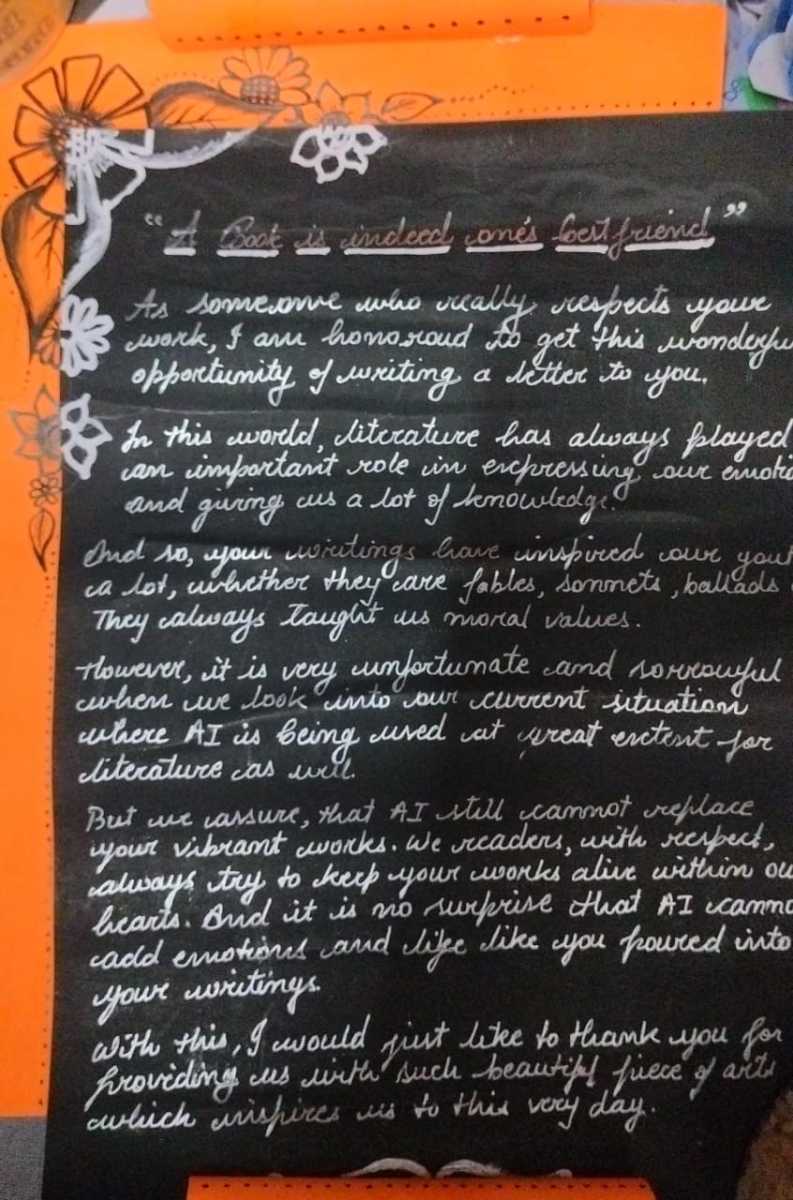 “A Book is indeed one's best friend”
As someone who really respects your
work, I am honoroud to get this wonderfu
opportunity of writing a letter to you.
In this world, literature has always played
an important role in expressing our emotio
and giving us a lot of knowledge.
And so, your writings have inspired our yout
a lot, whether they are fables, sonnets, ballads
They always taught us moral values.
However, it is very unfortunate and sorrowful
when we look into our current situation
where AI is being used at great extent for
literature as well.
But we assure, that AI still cannot replace
your vibrant works. We readers, with respect,
always try to keep your works alive within ou
hearts. And it is no surprise that AI canno
add emotions and life like you poured into
your writings.
With this, I would just like to thank you for
providing us with such beautiful piece of arts
which inspires us to this very day.